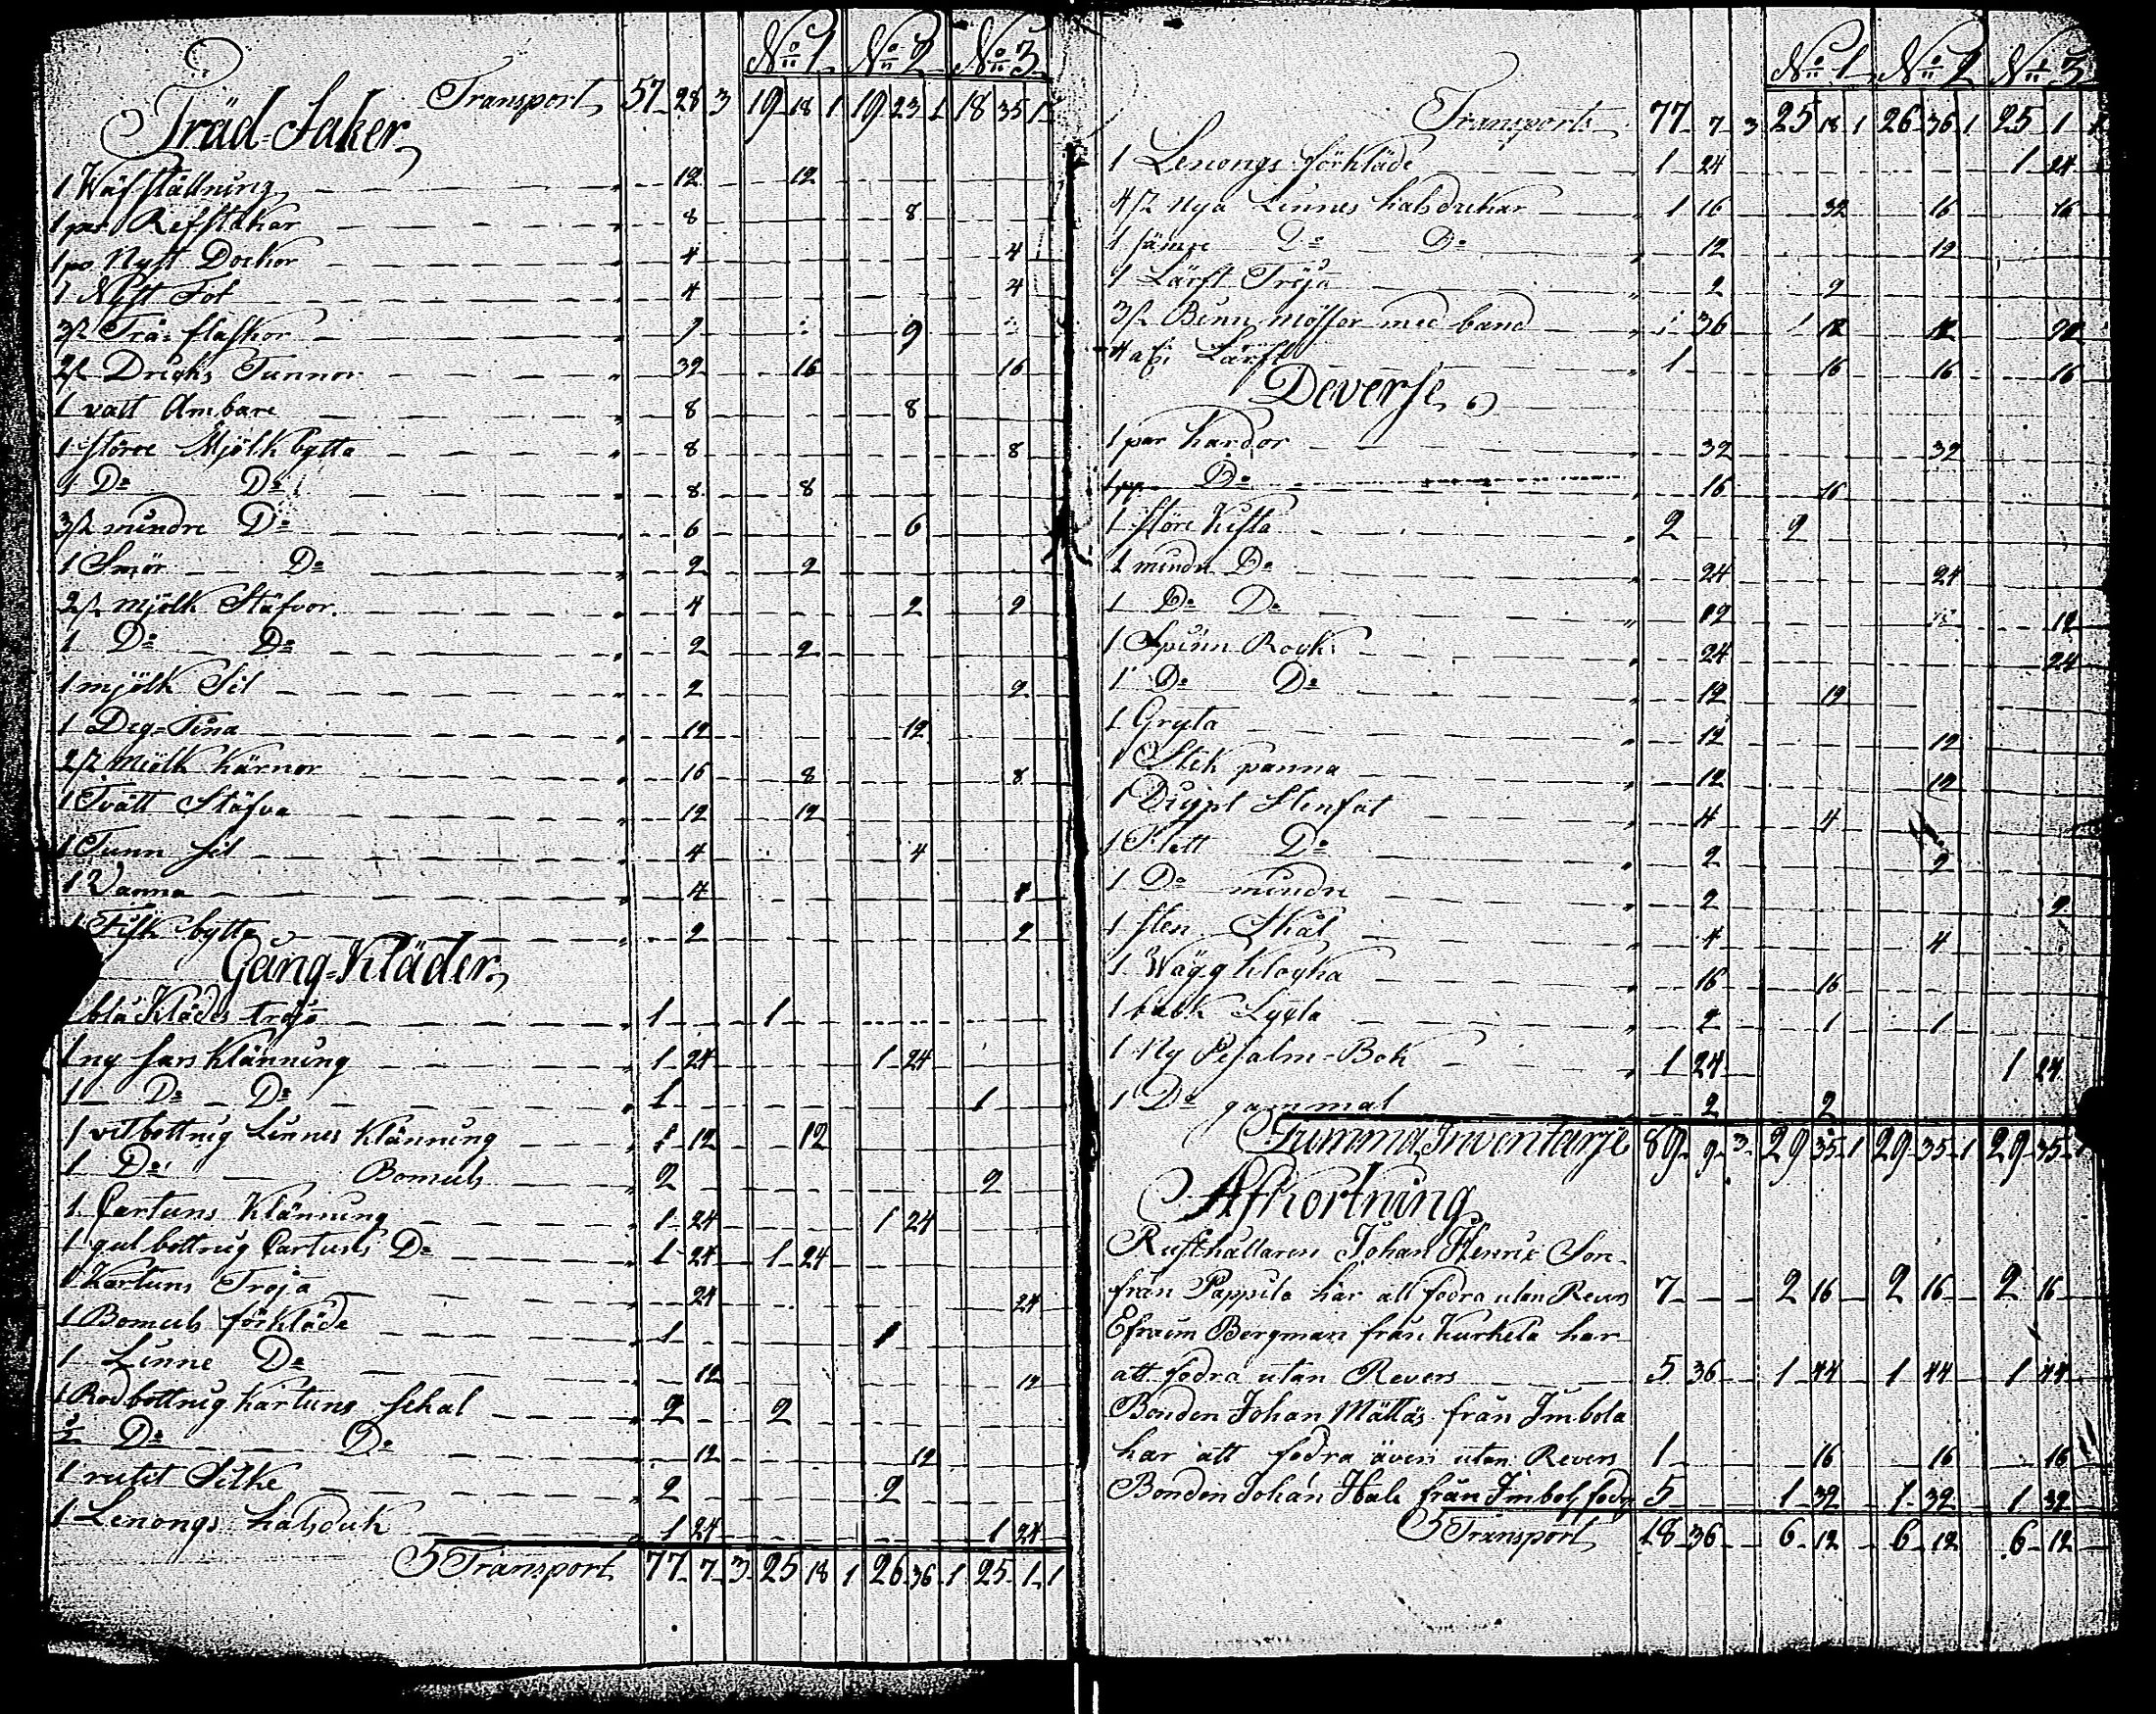 No 1 No 2 No 3
Transport 57 28 3 19 18 1 19 23 1 18 35 1
Träd-Saker
1 Wäfställning 12 12
1 par Refstakar 8 8
1 pr Nyst Dockor 4 4
1 Nyst Fot 4 4
3 st Trä-flaskor 9 9
2 st Dricks Tunnor 32 16 16
1 vatt Ämbare 8 8
1 större Mjölk bytta 8 8
1 Do Do 8 8
3 st mindre Do 6 6
1 Smör Do 2 2
2 st mjölk Stäfvor 4 2 2
1 Do Do 2 2
1 mjölk Sil 2 2
1 Deg-Tina 12 12
2 st Mjölk kärnor 16 8 8
1 Tvätt Stäfva 12 12
1 Tunn 4 4
1 Vanna 4 4
1 Fisk bytta 2 2
Gång-Kläder
1 blå Klädes tröja 1 1
1 ny sars Klänning 1 24 1 24
1 Do Do 1 1
1 vitbottnig Linnes Klänning 12 12
1 Do Bomuls 2 2
1 Cartuns Klänning 1 24 1 24
1 gul bottnig Cartuns Do 1 24 1 24
1 Kartuns Tröja 24 24
1 Bomuls förkläde 1 1
1 Linne Do 12 12
1 Rödbottnig Kartuns schal 2 2
1/2 Do Do 12 12
1 rutit Silke 2 2
1 Lenongs halsduk 1 24 1 24
Transport 77 7 3 25 18 1 26 36 1 25 1 1
No 1 No 2 No 3
Transport 77 7 3 25 18 1 26 36 1 25 1 1
1 Lenongs förkläde 1 24 1 24
4 st Nya Linnes halsdukar 1 16 32 16 16
1 sämre Do Do 12 12
1 Lärft Tröja 2 2
3 st Binn mössor med band 1 36 1 12
4 Lärft 1 16 16 16
Deverse
1 par kardor 32 32
1 pr Do 16 16
1 störe Kista 2 2
1 mindre Do 24 24
1 Do Do 12 12
1 Spinn Rock 24 24
1 Do Do 12 12
1 Gryta 12 12
1 Stek panna 12 12
1 Diupt Stenfat 4 4
1 Platt Do 2 2
1 Do mindre 2 2
1 sten Skål 4 4
1 Wägg Klocka 16 16
1 Lyckta 2 1 1
1 Ny Psalm-Bok 1 24 1 24
1 Do gammal 2 2
Summa Inventarje 89 9 3 29 35 1 29 35 1 29 35 1
Afkortning
Rusthållaren Johan Henric Son
från Pappila har att fodra utan Revers 7 2 16 2 16 2 16
Efraim Bergman från Kurkela har
att fodra utan Revers 5 36 1 44 1 44 1 44
Bonden Johan Mattas från Imbola
har att fodra även utan Revers 1 16 16 16
Bonden Johan från Imbola fodr 5 1 32 1 32 1 32
Transport 18 36 6 12 6 12 6 12